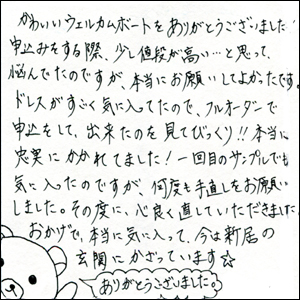 かわいいウェルカムボードをありがとうございました
申込みをする際、少し値段が高い…と思って、
悩んでたのですが、本当にお願いしてよかったです。
ドレスがすごく気に入ってたので、フルオーダーで
申込をして、出来たのを見てびっくり!!本当に
忠実にかかれてました！一回目のサンプルでも
気に入ったのですが、何度も手直しをお願い
しました。その度に、心良く直していただきました。
おかげで、本当に気に入って、今は新居の
玄関にかざっています☆
ありがとうございました。